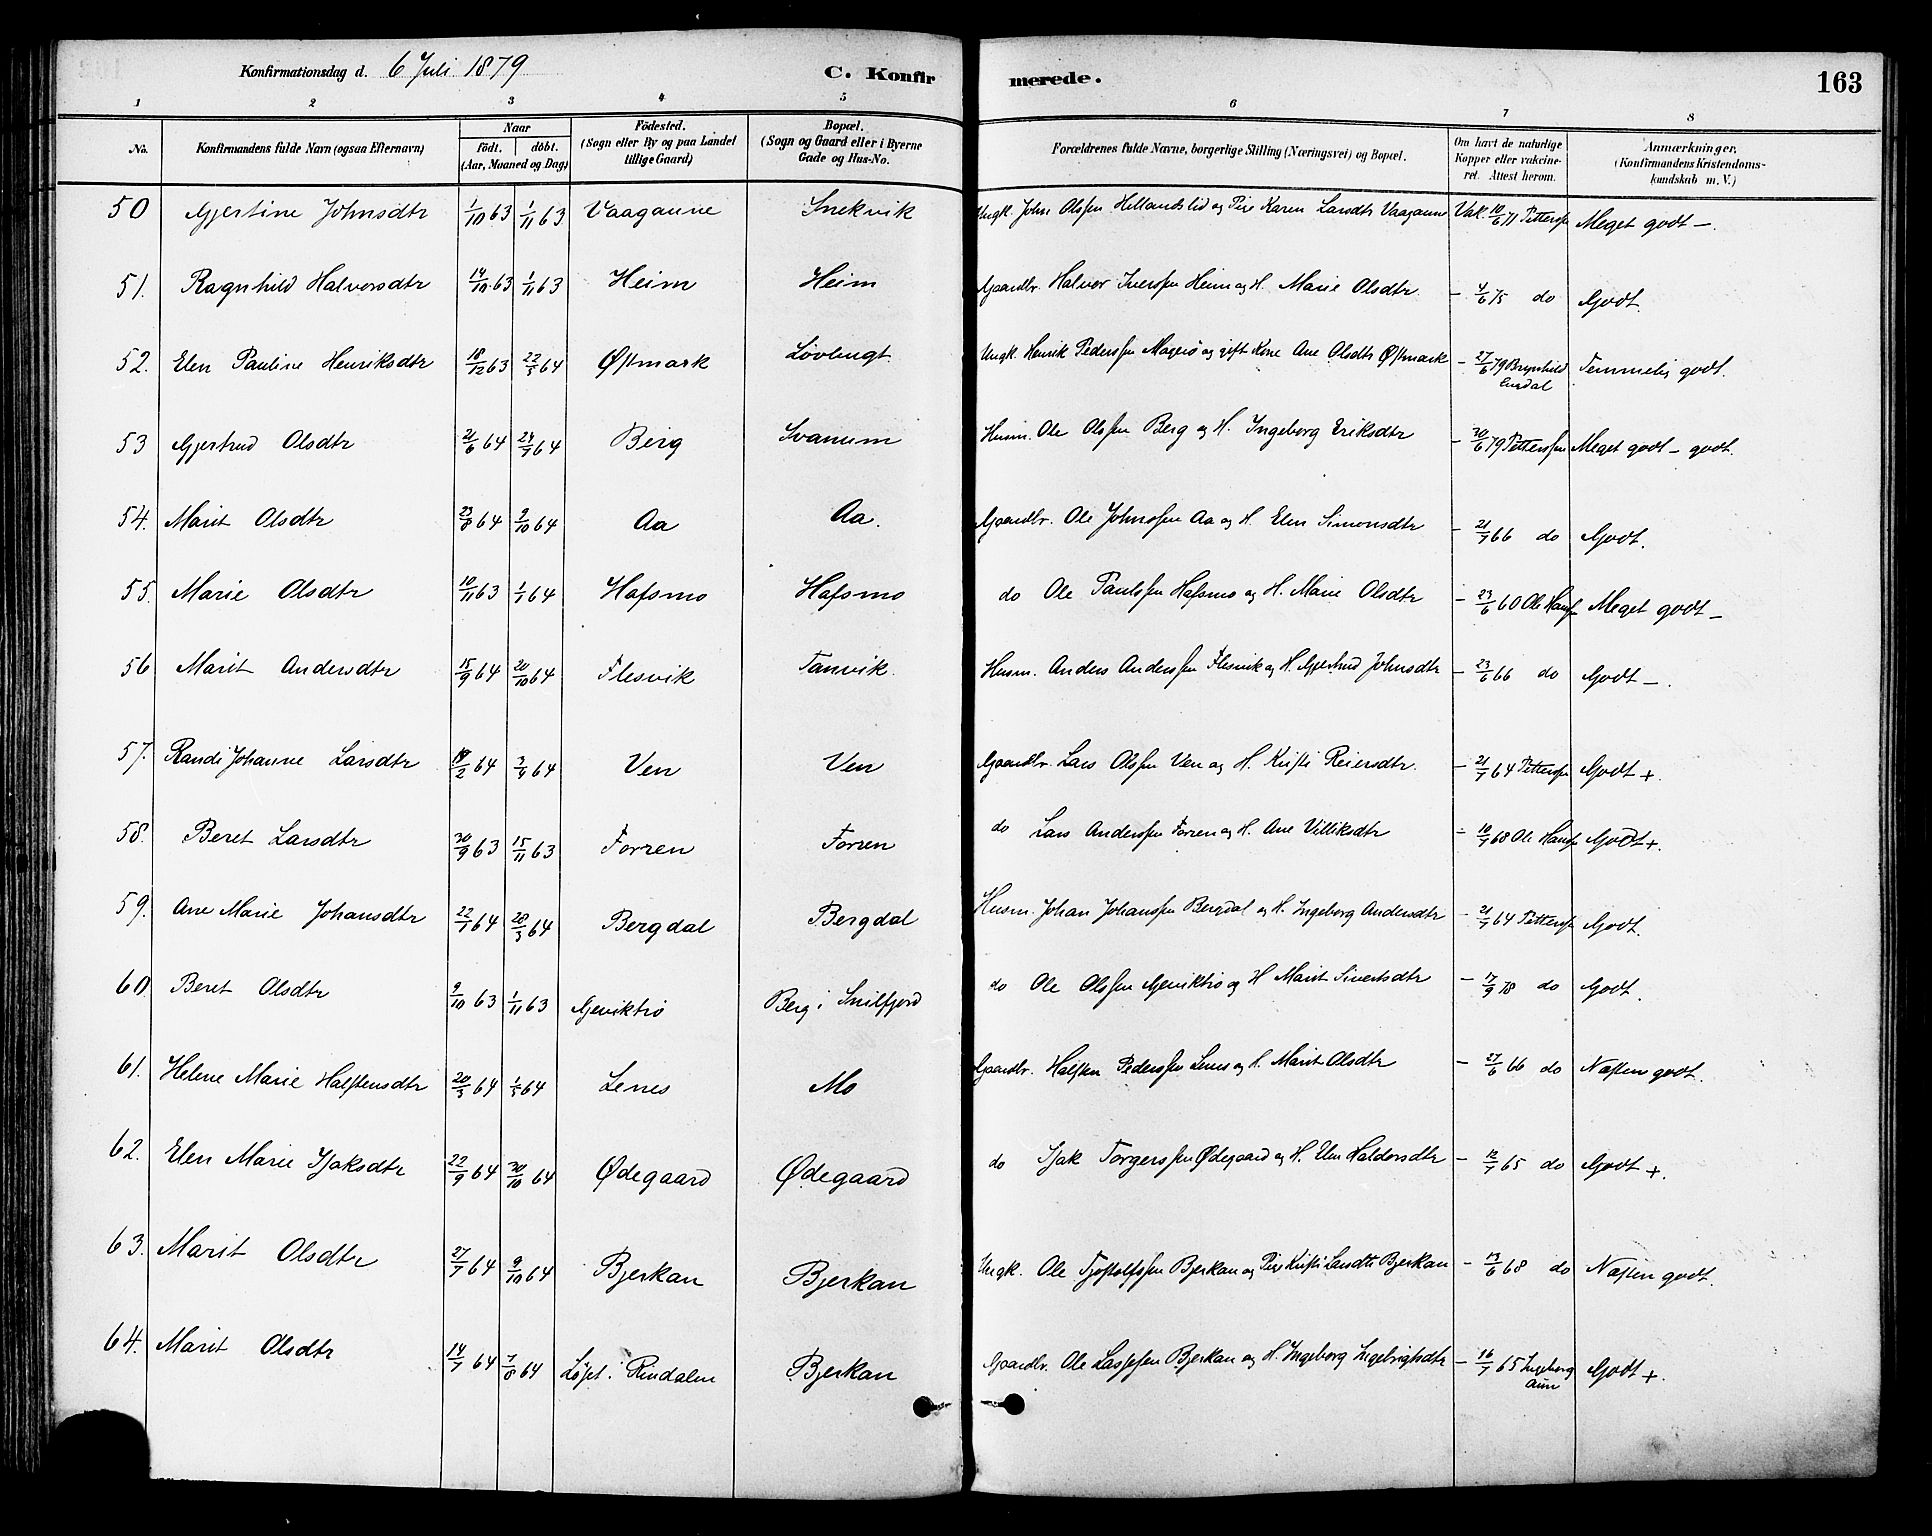 Konfirmationsdag d. 6 Juli 1879 C. Konfirmerede. 163
1 2 3 4 5 6 7 8
No. Konfirmandens fulde Navn (ogsaa Efternavn) Naar födt. döbt. (Aar, Maaned og Dag) Födested. (Sogn eller By og paa Landet tillige Gaard) Bopæl. (Sogn og Gaard eller i Byerne Gade og Hus-No. Forældrenes fulde Navne, borgerlige Stilling (Næringsvei) og Bopæl. Om havt de naturlige Kopper eller vakcineret. Attest herom. Anmærkninger. (Konfirmandens Kristendomskundskab m. V.)
50 Gjertine Johnsdtr 1/10 63 1/11 63 Vaaganne Snekvik Ungk. John Olsen Hellandslid og Pige Karen Larsdtr Vaaganne Vak. 10/6 71 Pettersen Meget godt –.
51. Ragnhild Halvorsdtr 14/10 63 1/11 63 Heim Heim Gaardbr. Halvor Iverssen Heim og H. Marie Olsdtr – 4/6 75 do Godt.
52. Elen Pauline Henriksdtr 18/12 63 22/5 64 Østmark Løvbugt Ungk. Henrik Pederssen Magerö og gift Kone Ane Olsdtr Østmark – 27/6 79 Brynhild Engdal Temmelig godt.
53 Gjertrud Olsdtr 21/6 64 24/7 64 Berg Svanum Husm. Ole Olssen Berg og H. Ingeborg Eriksdtr – 30/6 79 Petterssen Meget godt – godt.
54. Marit Olsdtr 23/8 64 9/10 64 Aa Aa. Gaardbr. Ole Johnssen Aa og H. Elen Simonsdtr – 21/7 66 do Godt.
55. Marie Olsdtr 10/11 63 1/1 64 Hafsmo Hafsmo do Ole Paulssen Hafsmo og H. Marie Olsdtr – 23/6 60 Ole Hansen Meget godt –
56 Marit Andersdtr 15/9 64 20/10 64 Flesvik Tanvik. Husm. Anders Anderssen Flesvik og H. Gjertrud Johnsdtr – 23/6 66 do Godt –.
57. Randi Johanne Larsdtr 18/2 64 3/4 64 Ven Ven Gaardbr. Lars Olssen Ven og H. Kristi Reiersdtr. – 21/7 64 Petterssen Godt +.
58. Beret Larsdtr 30/9 63 15/11 63 Forren Forren do Lars Anderssen Forren og H. Ane Villiksdtr – 10/7 68 Ole Hansen Godt +.
59. Ane Marie Johansdtr 22/1 64 28/3 64 Bergdal Bergdal Husm. Johan Johanssen Bergdal og H. Ingeborg Andersdtr – 21/7 64 Petterssen Godt.
60 Beret Olsdtr 9/10 63 1/11 63 Gjeviktrø Berg i Snilfjord do Ole Olssen Gjeviktrø og H Marit Sivertsdtr – 17/9 78 do Godt.
61. Helene Marie Halstensdtr 20/3 64 1/5 64 Lenes Mo Gaardbr. Halsten Pederssen Lenes og H. Marit Olsdtr – 27/6 66 do Næsten godt.
62. Elen Marie Isaksdtr 22/9 64 30/10 64 Ødegaard Ødegaard do Isak Torgerssen Ødegaard og H. Elen Haldorsdtr – 12/7 65 do Godt +.
63. Marit Olsdtr 27/7 64 9/10 64 Bjerkan Bjerkan Ungk. Ole Tjostolfssen Bjerkan og Pige Kristi Larsdtr Bjerkan – 13/6 68 do Næsten godt.
64. Marit Olsdtr 14/7 64 7/8 64 Løset i Rindalen Bjerkan Gaardbr. Ole Lassesen Bjerkan og H. Ingeborg Ingebrigtsdtr – 16/7 65 Ingeborg Aune Godt +.